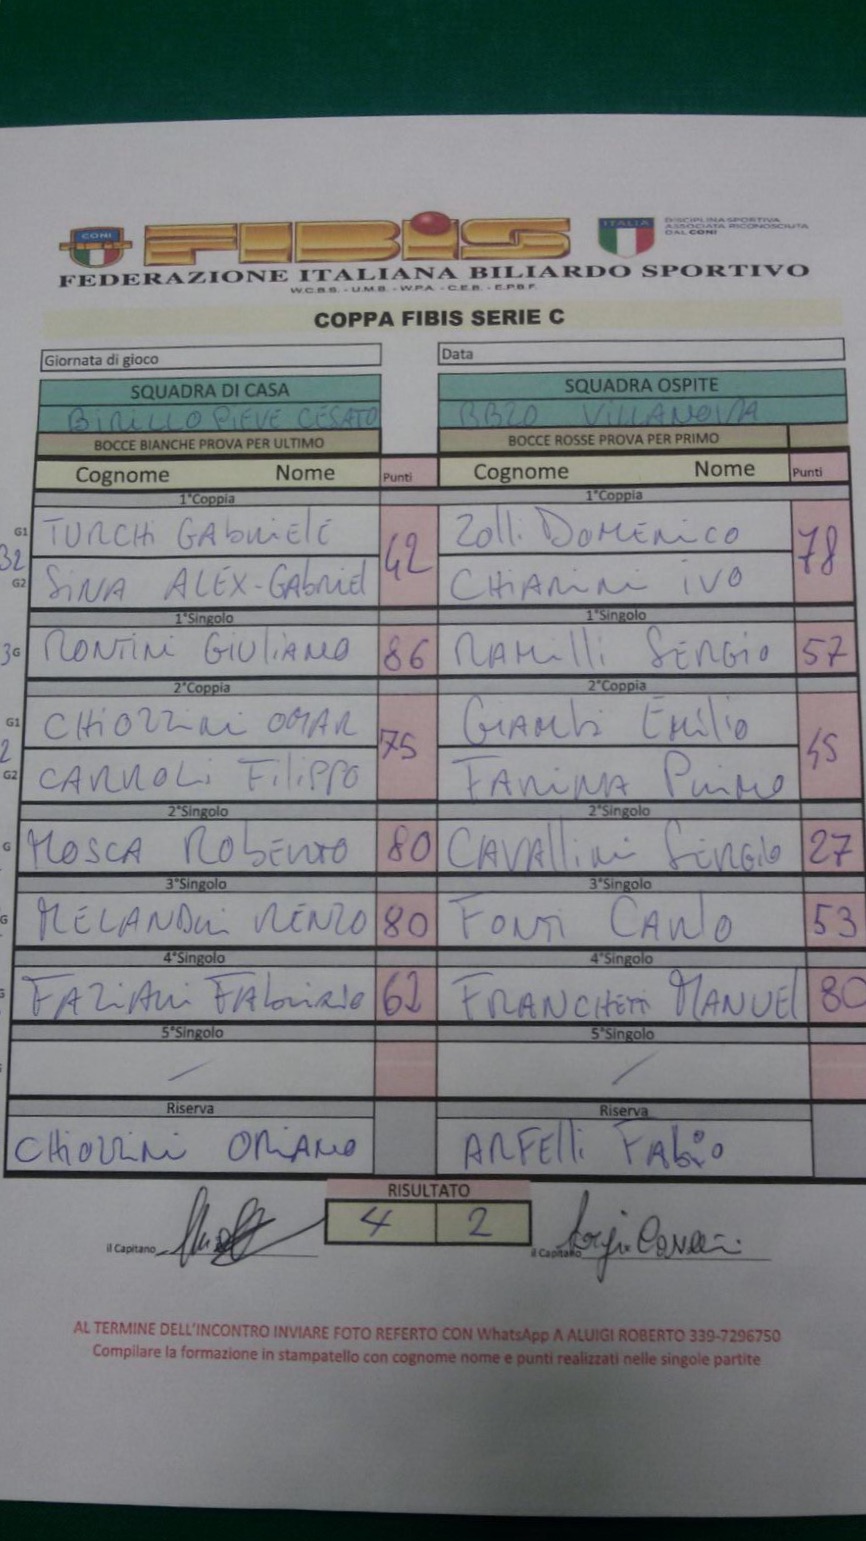 CONI FIBiS ITALIA DISCIPLINA SPORTIVA
ASSOCIATA RICONOSCIUTA
DAL CONI
FEDERAZIONE ITALIANA BILIARDO SPORTIVO
W.C.B.S. - U.M.B. - W.P.A. - C.E.B. - E.P.B.F.
COPPA FIBIS SERIE C
Giornata di gioco Data
SQUADRA DI CASA SQUADRA OSPITE
BIRILLO PIEVE CESATO BB20 VILLANOVA
BOCCE BIANCHE PROVA PER ULTIMO BOCCE ROSSE PROVA PER PRIMO
Cognome Nome Punti Cognome Nome Punti
1°Coppia 1°Coppia
G1 TURCHI GABRIELE 42 ZOLLI DOMENICO 78
32
G2 SINA ALEX-GABRIEL CHIARINI IVO
1°Singolo 1°Singolo
3G RONTINI GIULIANO 86 RAMILLI SERGIO 57
2°Coppia 2°Coppia
G1 CHIOZZINI OMAR 75 GIAMBI EMILIO 45
2
G2 CARROLI FILIPPO FARINA PRIMO
2°Singolo 2°Singolo
G MOSCA ROBERTO 80 CAVALLINI SERGIO 27
3°Singolo 3°Singolo
G MELANDRI RENZO 80 FONTI CARLO 53
4°Singolo 4°Singolo
FAZIANI FABRIZIO 62 FRANCHETTI MANUEL 80
5°Singolo 5°Singolo
/ /
Riserva Riserva
CHIOZZINI ORIANO ARFELLI FABIO
RISULTATO
4 2
il Capitano il Capitano
AL TERMINE DELL'INCONTRO INVIARE FOTO REFERTO CON WhatsApp A ALUIGI ROBERTO 339-7296750
Compilare la formazione in stampatello con cognome nome e punti realizzati nelle singole partite